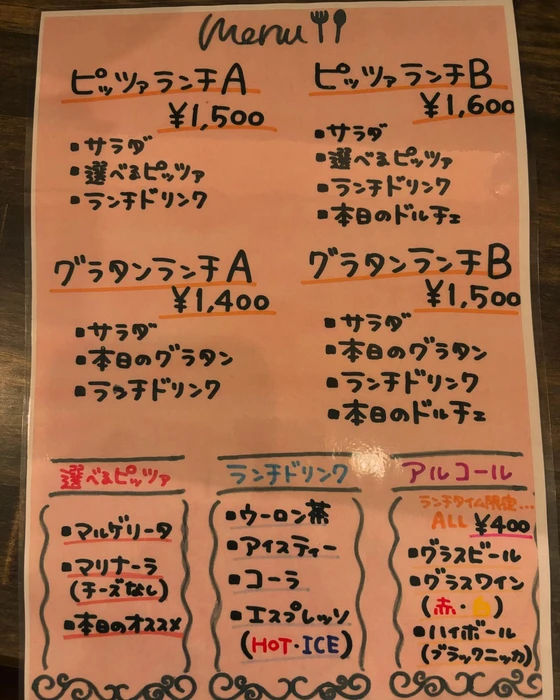 Menu
ピッツァランチA
¥1,500
・サラダ
・選べるピッツァ
・ランチドリンク
ピッツァランチB
¥1,600
・サラダ
・選べるピッツァ
・ランチドリンク
・本日のドルチェ
グラタンランチA
¥1,400
・サラダ
・本日のグラタン
・ランチドリンク
グラタンランチB
¥1,500
・サラダ
・本日のグラタン
・ランチドリンク
・本日のドルチェ
選べるピッツァ
・マルゲリータ
・マリナーラ
(チーズなし)
・本日のオススメ
ランチドリンク
・ウーロン茶
・アイスティー
・コーラ
・エスプレッソ
(HOT・ICE)
アルコール
ランチタイム限定...
ALL ¥400
・グラスビール
・グラスワイン
(赤・白)
・ハイボール
(ブラックニッカ)